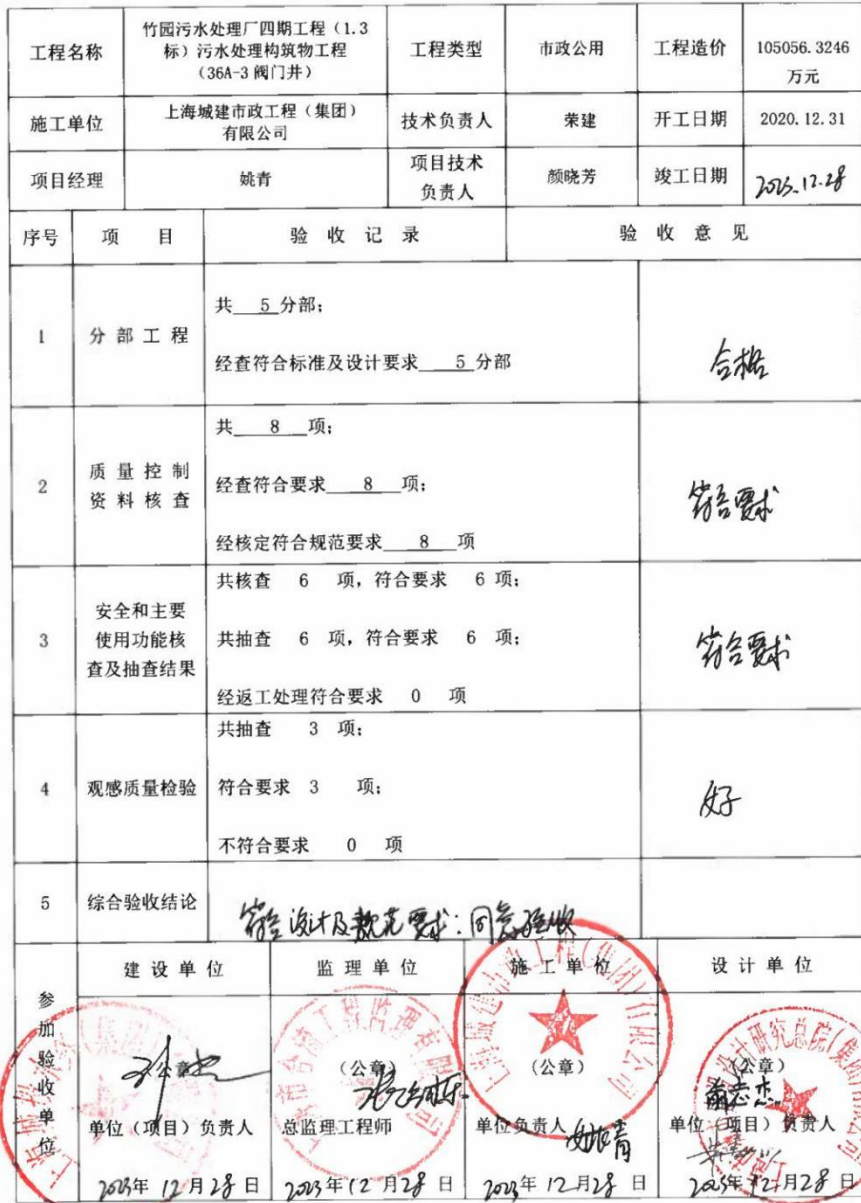 工程名称
竹园污水处理厂四期工程（1.3
标）污水处理构筑物工程
（36A-3 阀门井）
工程类型
市政公用
工程造价
105056.3246
万元
施工单位
上海城建市政工程（集团）
有限公司
技术负责人
荣建
开工日期
2020.12.31
项目经理
姚青
项目技术
负责人
颜晓芳
竣工日期
2023.12.28
序号
项 目
验 收 记 录
验 收 意 见
1
分 部 工 程
共 5 分部；
经查符合标准及设计要求 5 分部
合格
2
质 量 控 制
资 料 核 查
共 8 项；
经查符合要求 8 项；
经核定符合规范要求 8 项
符合要求
3
安全和主要
使用功能核
查及抽查结果
共核查 6 项，符合要求 6 项；
共抽查 6 项，符合要求 6 项；
经返工处理符合要求 0 项
符合要求
4
观感质量检验
共抽查 3 项；
符合要求 3 项；
不符合要求 0 项
好
5
综合验收结论
符合设计及规范要求：同意验收
参加验收单位
建 设 单 位
（公章）
单位（项目）负责人
2023年 12月28日
监 理 单 位
（公章）
总监理工程师
2023年12月28日
施 工 单 位
（公章）
单位负责人 姚青
2023年12月28日
设 计 单 位
（公章）
单位（项目）负责人
2023年12月28日